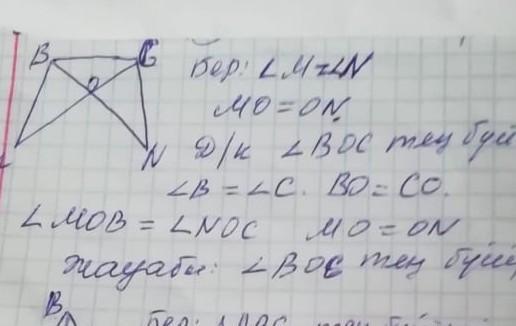 B C
O
N
Бер: ∠M=∠N
MO=ON.
Д/к ∠BOC тең бүй
∠B=∠C. BO=CO.
∠MOB=∠NOC MO=ON
Жауабы: ∠BOC тең бүй
B